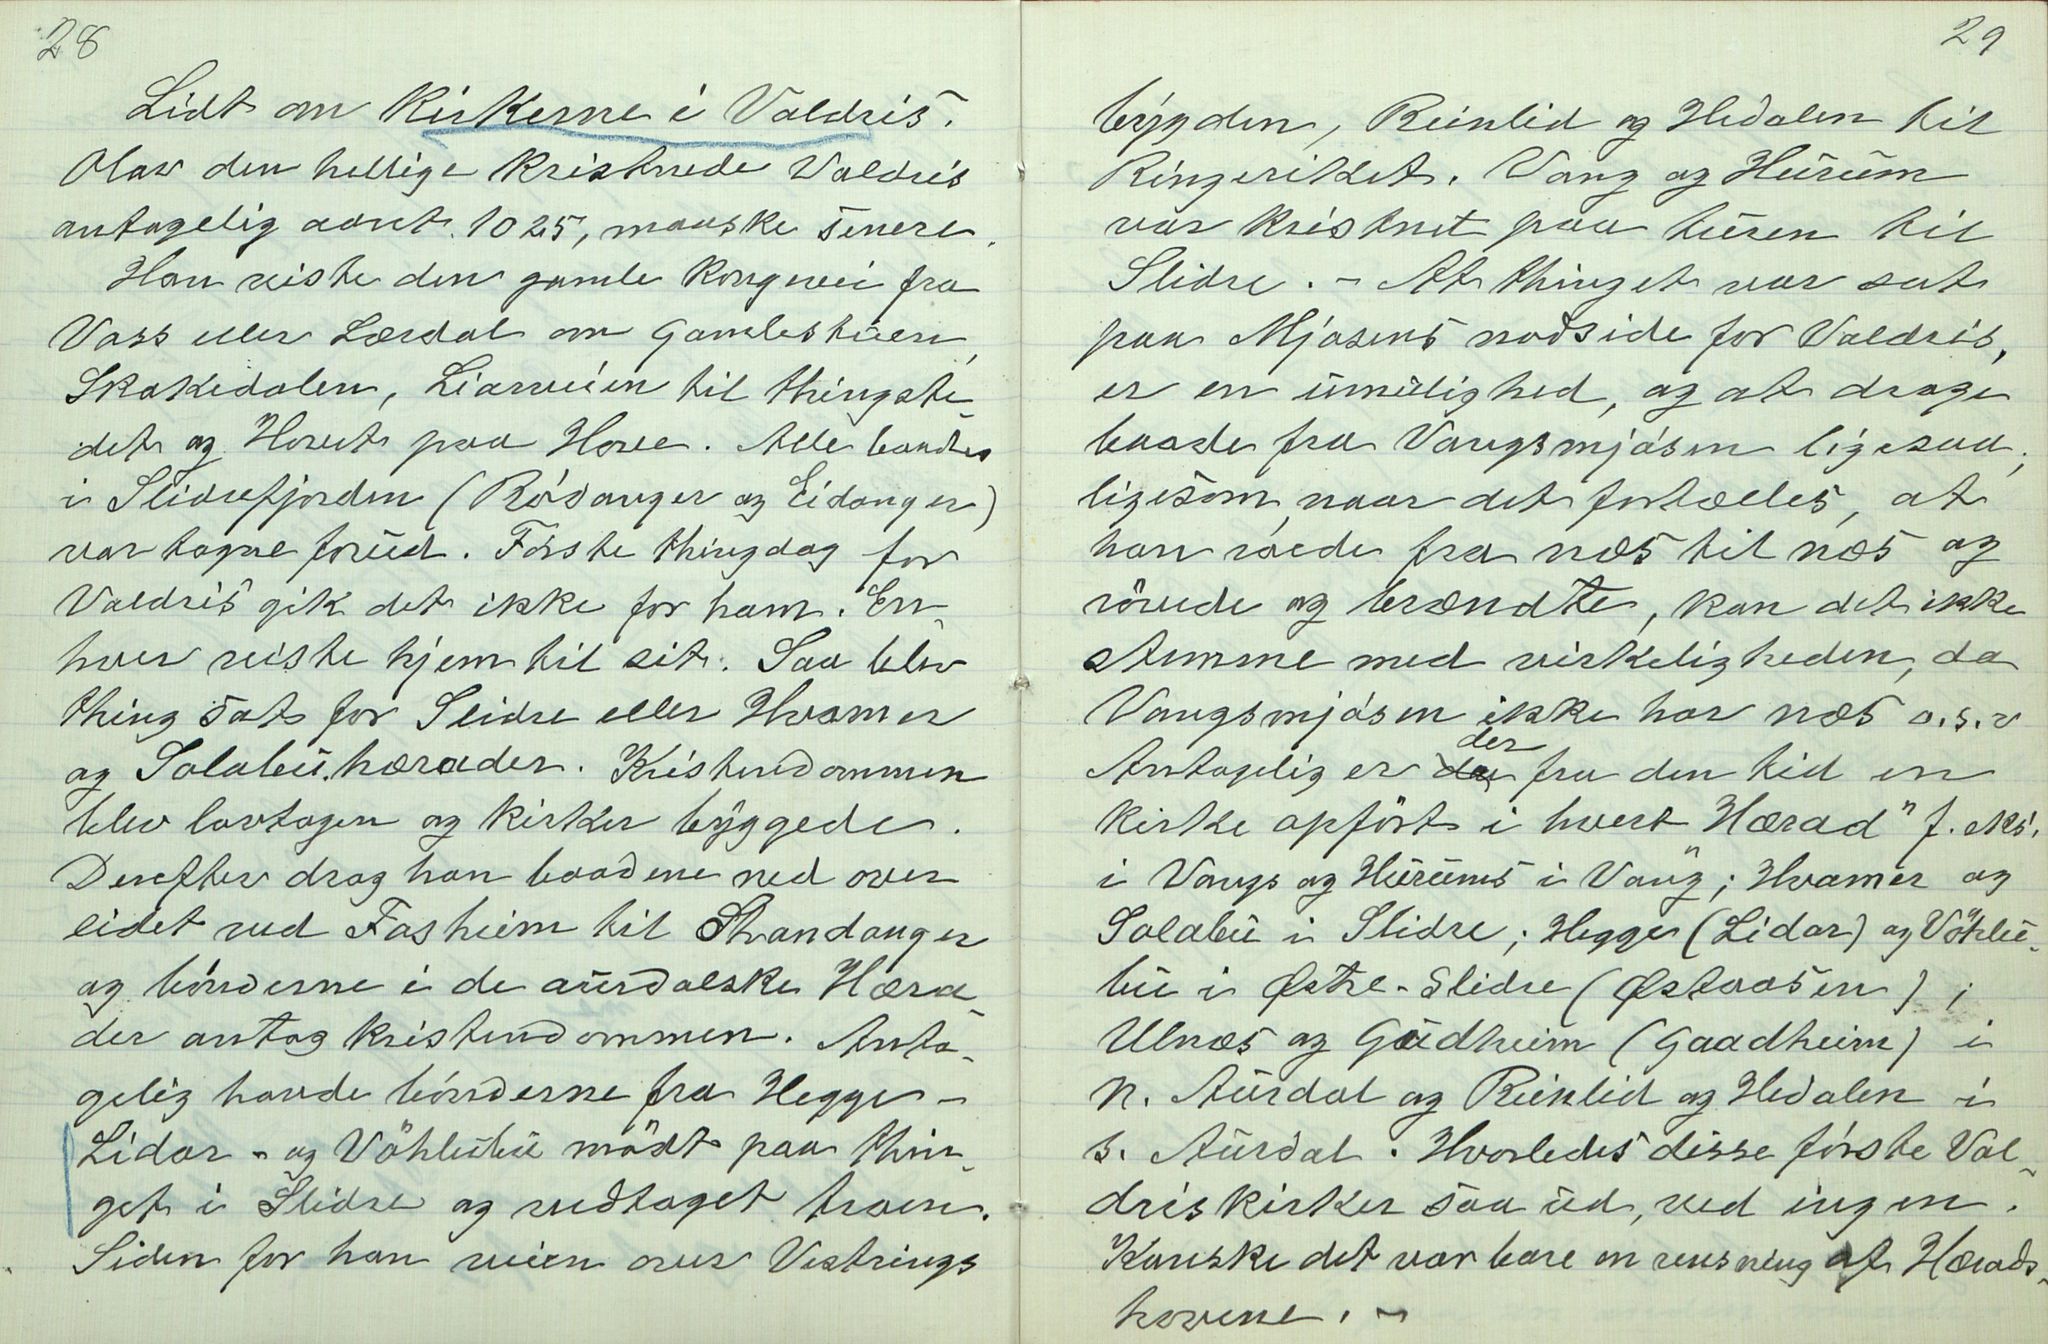 28
Lidt om Kirkerne i Valdris.
Olav den hellige kristnede Valdris
antagelig aaret 1025, maaske senere.
Han reiste den gamle kongevei fra
Vass eller Lærdal om Gamlestuen,
Skakedalen, Liarveien til thingste-
det og Hovet paa Hove. Alle baades
i Slidrefjorden (Rósanger og Eidanger)
var tagne forud. Fórste thingdag for
Valdris gik det ikke for ham. En-
hver reiste hjem til sit. Saa blev
thing sat for Slidre eller Hvamer
og Solabu. hærader. Kristendommen
blev lovtagen og kirker byggede.
Derefter drog han baadene ned over
eidet ved Fasheim til Strandanger
og bónderne i de aurdalske Hæra-
der antog kristendommen. Anta-
gelig havde bónderne fra Hegge -
Lidar - og Vöhlubu mödt paa thin-
get i Slidre og vedtaget troen.
Siden for han veien over Vestrings
29
bygden, Reinlid og Hedalen til
Ringeriket. Vang og Hurum
var kristnet paa turen til
Slidre. - At thinget var sat
paa Mjøsens nodside for Valdris,
er en umulighed, og at drage
baade fra Vangsmjósen ligesaa;
ligesom, naar det fortælles, at
han roede fra næs til næs og
rövede og brændte, kan det ikke
stemme med virkeligheden, da
Vangsmjósen ikke har næs o.s.v
der
Antagelig er fra den tid en
kirke opfört i hvert Hærad" f. eks.
i Vangs og Hurums i Vang; Hvamer og
Solabu i Slidre; Hegge (Lidar) og Vöhlu-
bu i Østre-Slidre (Østaasen);
Ulnæs og Gudheim (Gaadheim) i
N. Aurdal og Reinlid og Hedalen i
S. Aurdal. Hvorledes disse fórste Val-
driskirker saa ud, ved ingen.
Kanske det var bare en rensning af Hærads-
hovene. -